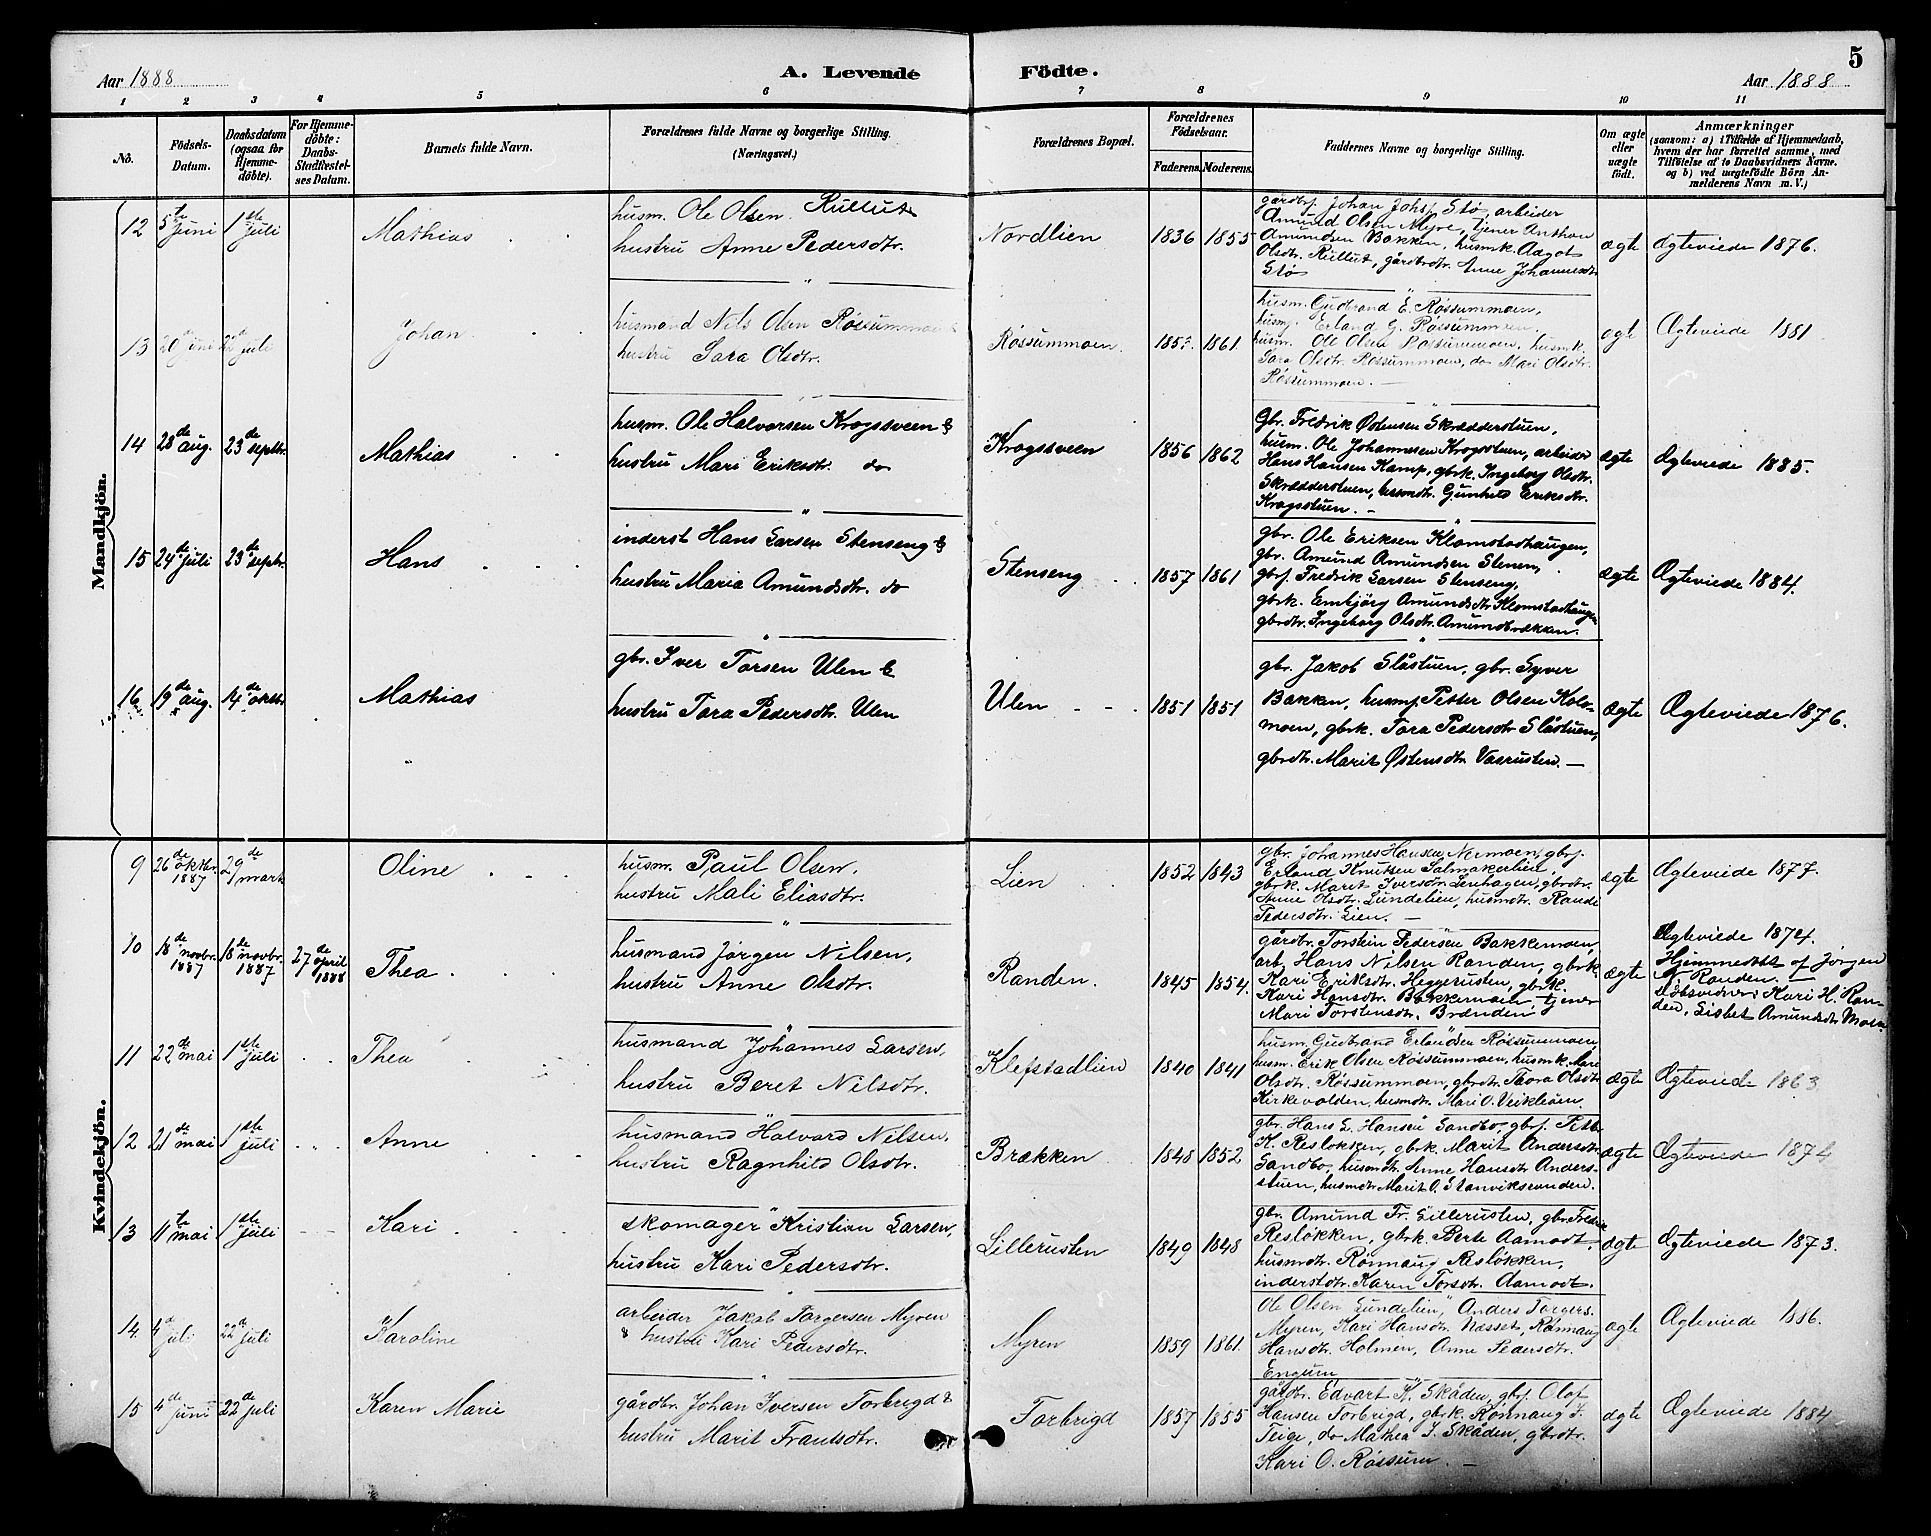 5
Aar 1888
A. Levende Födte.
Aar 1888
1 2 3 4 5 6 7 8 9 10 11
No.
Födsels-Datum.
Daabsdatum (ogsaa for Hjemme-döbte).
For Hjemme-döbte: Daabs-Stadfestel-ses Datum.
Barnets fulde Navn.
Forældrenes fulde Navne og borgerlige Stilling. (Næringsvei.)
Forældrenes Bopæl.
Forældrenes Födselsaar.
Faderens. Moderens.
Faddernes Navne og borgerlige Stilling.
Om ægte eller uægte födt.
Anmærkninger
(saasom: a) i Tilfælde af Hjemmedaab, hvem der har forrettet samme, med Tilföielse af to Daabsvidners Navne. og b) ved uægtefödte Börn An-melderens Navn m. V.)
Mandkjön.
12 5te juni 1ste juli
Mathias
husm. Ole Olsen Rullut
hustru Anne Pedersdtr.
Nordlien 1836 1855
gårdbf. Johan Johs. Stø, arbeider
Amund Olsen Myre, tjener Anthon
Amundsen Bakken, husmk. Aagot
Olsdtr. Rullut, gårdbrdtr. Anne Johannesdtr
Stø
ægte Ægteviede 1876.
13 20de juni 22de juli
Johan
husmand Nils Olsen Røssummoen &
hustru Sara Olsdtr.
Røssummoen. 1861
husm. Gudbrand E. Røssummoen,
husm. Erland G. Røssummoen,
husm. Ole Olsen Røssummoen, husmk.
Sara Olsdtr. Røssummoen, do Mari Olsdtr.
Røssummoen. —
ægte Ægteviede 1881
14 28de aug. 23de septbr.
Mathias
husm. Ole Halvorsen Krogssveen &
hustru Mari Eriksdtr. do
Krogssveen 1856 1862
Gbr. Fredrik Østensen Skrædderstuen,
husm. Ole Johannesen Krogsstuen, arbeider
Hans Hansen Kamp, gbrk. Ingeborg Olsdtr.
Skrædderstuen, husmdtr. Gunhild Eriksdtr.
Krogsstuen. —
ægte Ægteviede 1885.
15 24de juli 23de septbr.
Hans
inderst Hans Larsen Stenseng &
hustru Maria Amundsdtr. do
Stenseng 1857 1861
gbr. Ole Eriksen Klomstadhaugen,
gbr. Amund Amundsen Stenen,
gbrf. Fredrik Larsen Stenseng,
gbrk. Embjörg Amundsdtr. Klomstadhaugen
gbrdtr. Ingeborg Olsdtr. Amundbrækken.
ægte Ægteviede 1884.
16 19de aug. 14de oktbr.
Mathias
gbr. Iver Torsen Ulen &
hustru Tora Pedersdtr. Ulen
Ulen 1851 1851
gbr. Jakob Slåstuen, gbr. Syver
Bakken, husmf. Petter Olsen Kols-
moen, gbrk. Tora Pedersdtr Slåstuen,
gbrdtr. Marit Østensdtr. Vasrusten. —
ægte Ægteviede 1876.
Kvindekjön.
9 26de oktbr. 1887 29de marts
Oline
husm. Paul Olsen,
hustru Mali Eliasdtr.
Lien 1852 1843
gbr. Johannes Hansen Nermoen, gbrf.
Erland Knutsen Salmakerlien,
gbrk. Marit Iversdtr. Lenhagen, gbrdtr.
Anne Olsdtr. Lundelien, husmdtr. Randi
Pedersdtr. Lien. —
ægte Ægteviede 1877.
10 18de novbr. 1887 18de novbr. 1887 27de april 1888
Thea
husmand Jørgen Nilsen,
hustru Anne Olsdtr.
Randen. 1845 1854.
gårdbr. Torstein Pedersen Bakkemoen,
arb. Hans Nilsen Randen, gbrk.
Kari Eriksdtr. Heggerusten, gbrk.
Kari Hansdtr. Bakkemoen, tjener
Mari Torstensdtr. Brænden
ægte Ægteviede 1874.
Hjemmedöbt af Jørgen
N. Randen. —
Döbsvidner: Kari H. Ran-
den, Lisbet Amundsdtr Moen
11 22de mai 1ste juli
Thea
husmand Johannes Larsen,
hustru Beret Nilsdtr.
Klefstadlien 1840 1841
husm. Gudbrand Erlandsen Røssummoen
husm. Erik Olsen Røssummoen, husmk. Mari
Olsdtr. Røssummoen, gbrdtr. Thora Olsdtr
Kirkevolden, husmdtr. Mari O. Veikleöen.
ægte Ægteviede 1863
12 21de mai 1ste juli
Anne
husmand Halvard Nilsen,
hustru Ragnhild Olsdtr.
Brækken 1848 1852
gbr. Hans L. Hansen Sandbo, gbrf. Pett.
K. Resløkken, gbrk. Marit Andersdtr
Sandbo, husmdtr. Anne Hansdtr Anders-
stuen, husmdtr Marit O. Stanviksranden.
ægte Ægteviede 1874
13 11te mai 1ste juli
Kari
skomager Kristian Larsen,
hustru Kari Pedersdtr.
Lillerusten 1849 1848
gbr. Amund Fr. Lillerusten, gbr. Fredrik
Resløkken, gbrk. Berte Aamodt,
husmdtr. Rönnaug Resløkken,
inderstdtr. Karen Torsdtr. Aamodt.
ægte Ægteviede 1873.
14 4de juli 22de juli
Karoline
arbeider Jakob Torgersen Myren
& hustru Kari Pedersdtr.
Myren 1859 1861.
Ole Olsen Lundelien, Anders Torgers.
Myren, Kari Hansdtr. Næsset, Rönnaug
Hansdtr. Holmen, Anne Pedersdtr.
Engum
ægte Ægteviede 1886.
15 4de juni 22de juli
Karen Marie
gårdbr. Johan Iversen Torbrigd &
hustru Marit Frantsdtr.
Torbrigd 1857 1855
gårdbr. Edvart K. Skåden, gbrf. Olaf
Hansen Torbrigd, gbrk. Rönnaug I.
Teige, do Mathea J. Skåden, gbrdtr.
Kari O. Røssum. —
ægte Ægteviede 1884